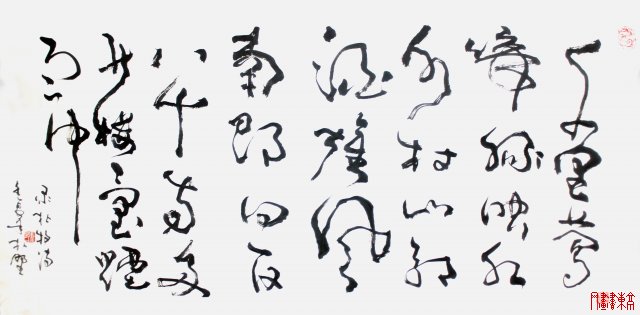 千里鶯
啼綠映紅
水村山郭
酒旗風
南朝四百
八十寺多
少樓臺煙
雨中
录杜牧詩